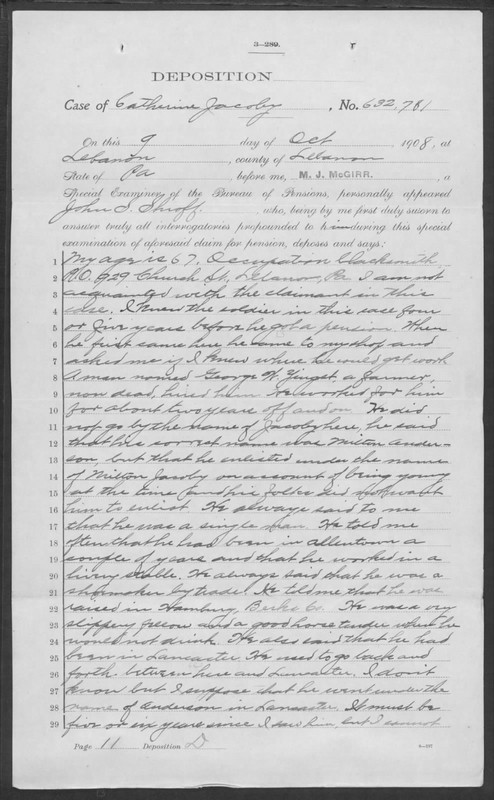 3—289.
DEPOSITION
Case of Catherine Jacoby, No. 632,781
On this 9 day of Oct 1908, at
Lebanon, county of Lebanon
State of Pa, before me, M. J. McGIRR., a
Special Examiner of the Bureau of Pensions, personally appeared
John S. Shroff. who, being by me first duly sworn to
answer truly all interrogatories propounded to him during this special
examination of aforesaid claim for pension, deposes and says:
1 My age is 67. Occupation blacksmith
2 P.O. 929 Church St, Lebanon, Pa I am not
3 acquainted with the claimant in this
4 case. I knew the soldier in this case four
5 or five years before he got a pension. When
6 he first came here he came to my shop and
7 asked me if I knew where he could get work
8 A man named George W. Yingst, a farmer,
9 now dead, hired him. He worked for him
10 for about two years off and on. He did
11 not go by the name of Jacoby here, he said
12 that his correct name was Milton Ander-
13 son, but that he enlisted under the name
14 of Milton Jacoby on account of being young
15 at the time and his folks did not want
16 him to enlist. He always said to me
17 that he was a single man. He told me
18 often that he had been in Allentown a
19 couple of years and that he worked in a
20 livery stable. He always said that he was a
21 shoemaker by trade. He told me that he was
22 raised in Hamburg, Berks Co. He was a very
23 slippery fellow and a good horse tender when he
24 would not drink. He also said that he had
25 been in Lancaster. He used to go back and
26 forth between here and Lancaster. I don't
27 know but I suppose that he went under the
28 name of Anderson in Lancaster. It must be
29 five or six years since I saw him, but I cannot
Page 11 Deposition D